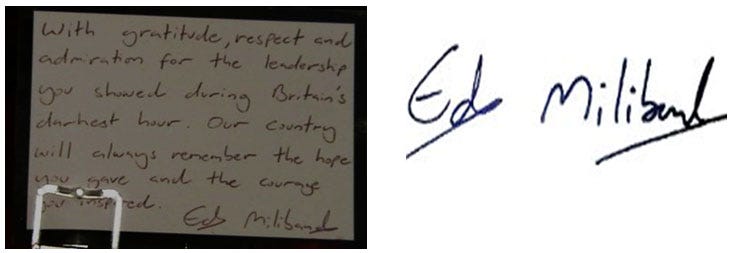 With gratitude, respect and
admiration for the leadership
you showed during Britain's
darkest hour. Our country
will always remember the hope
you gave and the courage
you inspired.
Ed Miliband
Ed Miliband